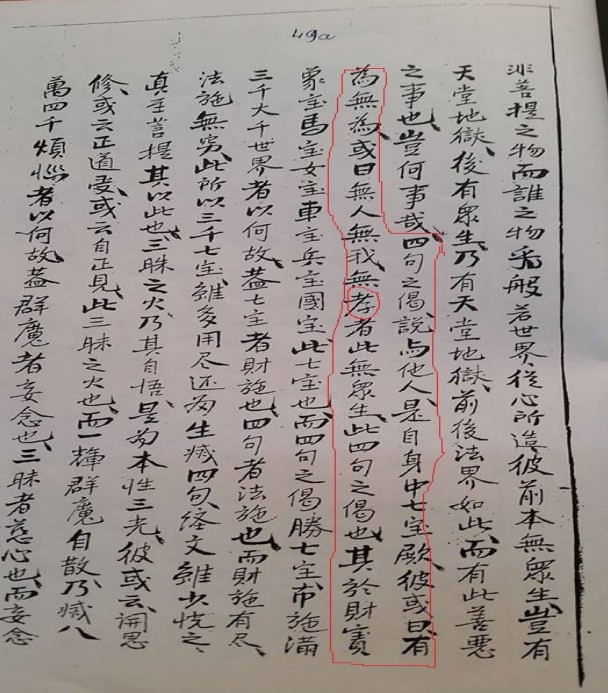 49a
非菩提之物而誰之物乎般若世界從心所造彼前本無眾生豈有
天堂地獄後有眾生乃有天堂地獄前後法界如此而有此善惡
之事也豈何事哉四句之偈説与他人是自身中七宝厥彼或曰有
為無為或曰無人無我無孝者此無眾生此四句之偈也其於財寳
象宝馬宝女宝車宝兵宝國宝此七宝也而四句之偈勝七宝布施滿
三千大千世界者以何故蓋七宝者財施也四句者法施也而財施有尽
法施無窮此所以三千七宝雖多用尽还為生滅四句経文雖少悦之
真至菩提其以此也三昧之火乃其自悟是為本性三光彼或云闻思
修或云正道受或云自正見此三昧之火也而一輝群魔自散乃滅八
萬四千煩惱者以何故蓋群魔者妄念也三昧者慈心也而妄念